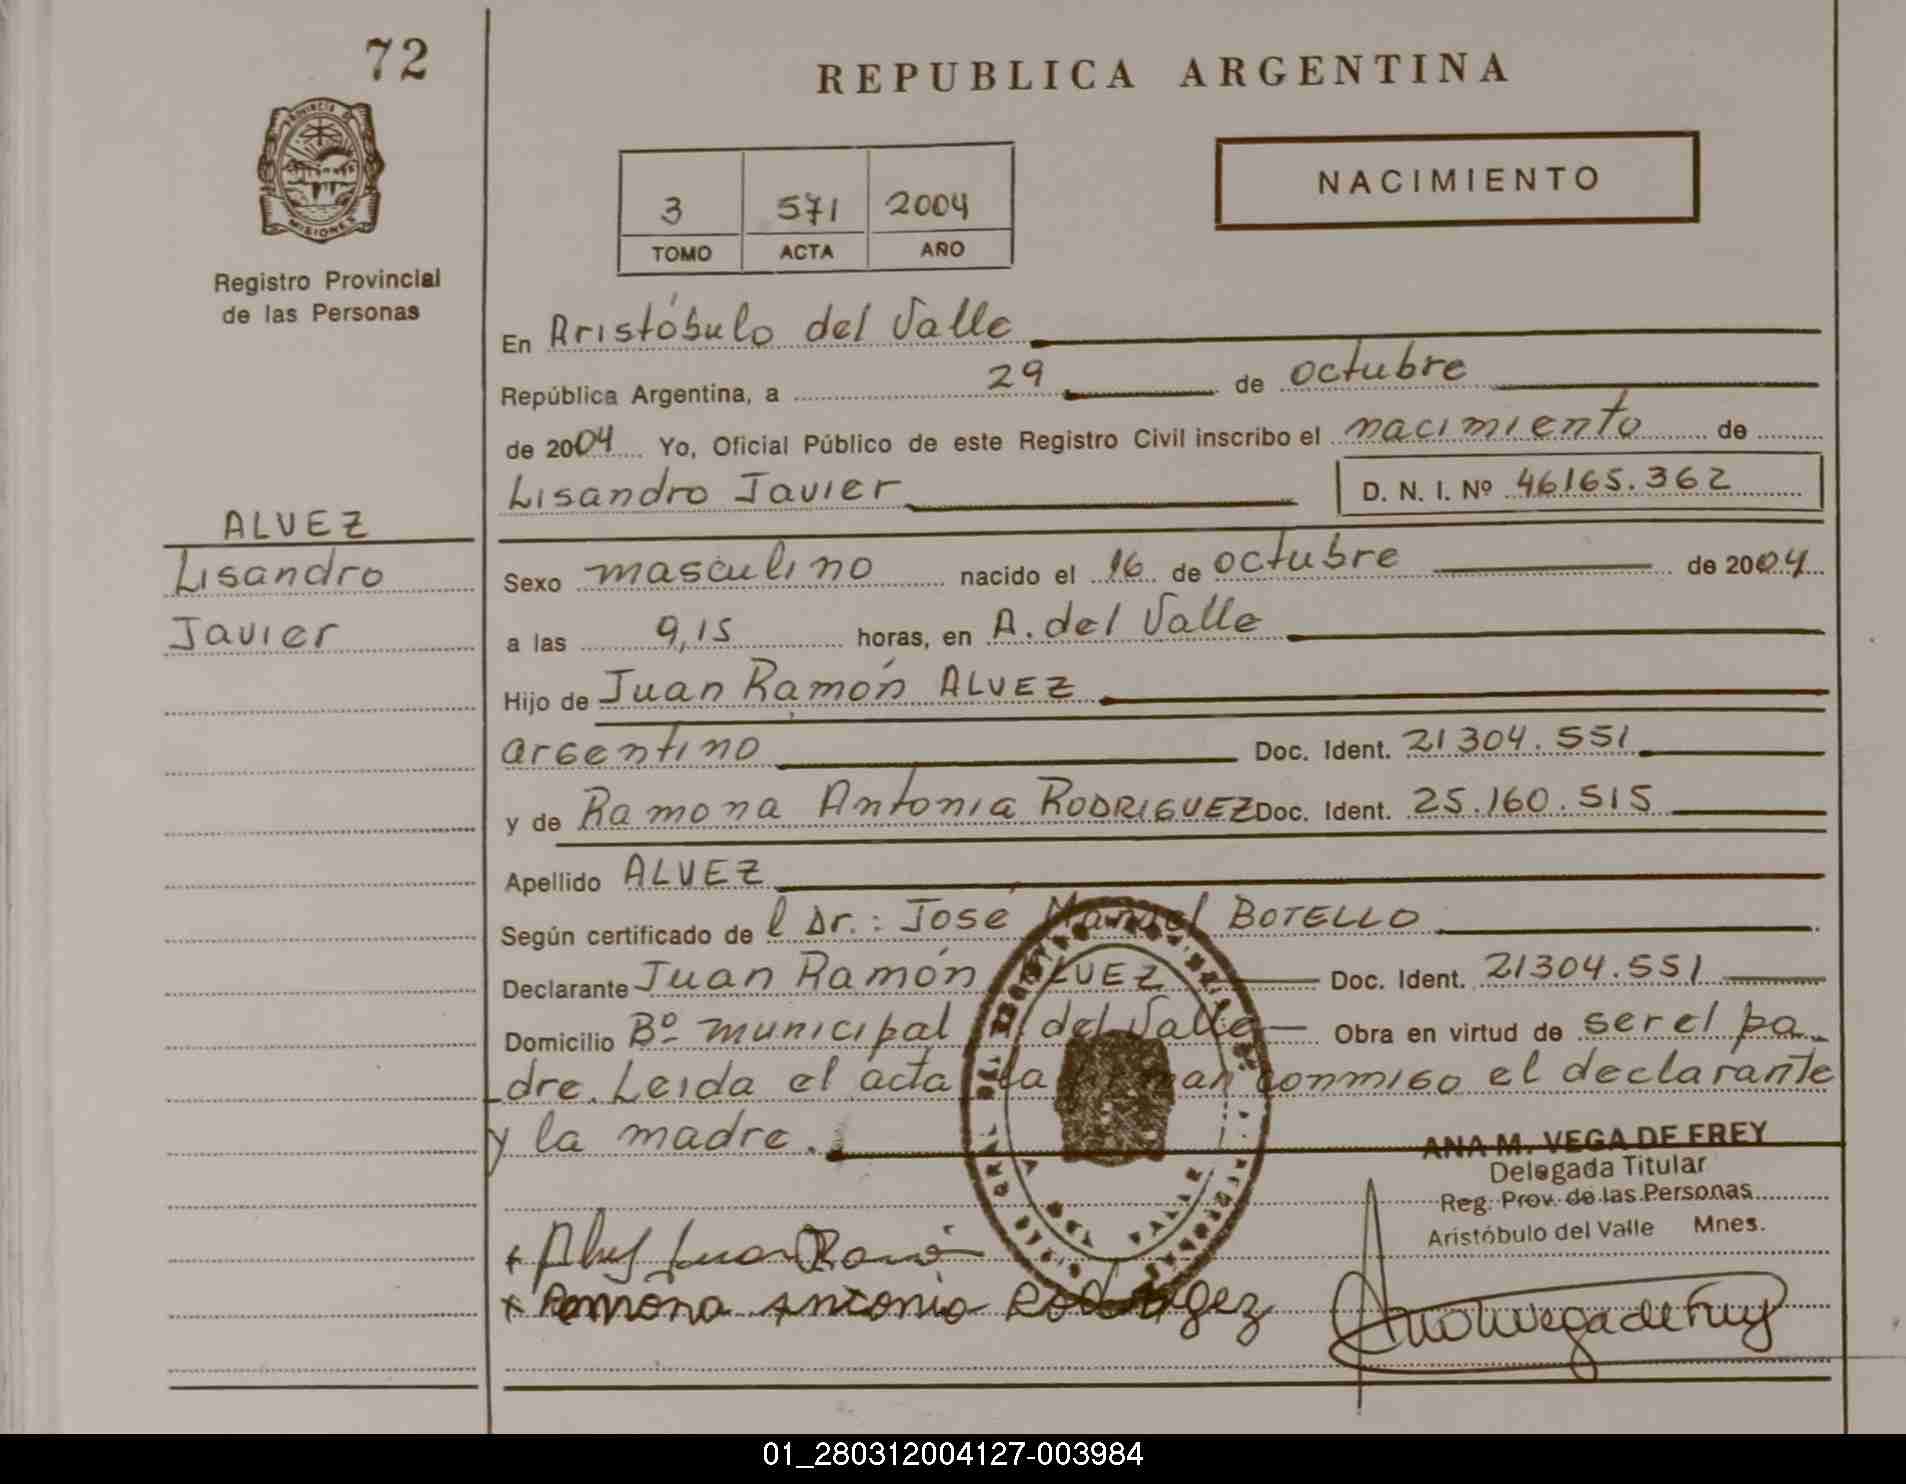 72
REPUBLICA ARGENTINA
PROVINCIA DE
MISIONES
Registro Provincial
de las Personas
3 571 2004
TOMO ACTA AÑO
NACIMIENTO
En Aristóbulo del Valle
República Argentina, a 29 de octubre
de 2004 Yo, Oficial Público de este Registro Civil inscribo el nacimiento de
Lisandro Javier D. N. I. Nº 46165.362
ALVEZ
Lisandro
Javier
Sexo masculino nacido el 16 de octubre de 2004
a las 9,15 horas, en A. del Valle
Hijo de Juan Ramón ALVEZ
argentino Doc. Ident. 21304.551
y de Ramona Antonia RODRIGUEZ Doc. Ident. 25.160.515
Apellido ALVEZ
Según certificado de l Dr.: José Manuel BOTELLO
Declarante Juan Ramón ALVEZ Doc. Ident. 21304.551
Domicilio Bº municipal A. del Valle Obra en virtud de ser el pa
dre. Leida el acta la firman conmigo el declarante
y la madre.
ANA M. VEGA DE FREY
Delegada Titular
Reg. Prov. de las Personas
Aristóbulo del Valle Mnes.
x Alvez Juan Ramón
x Ramona Antonia Rodrigez
Ana M Vega de Frey
01_280312004127-003984